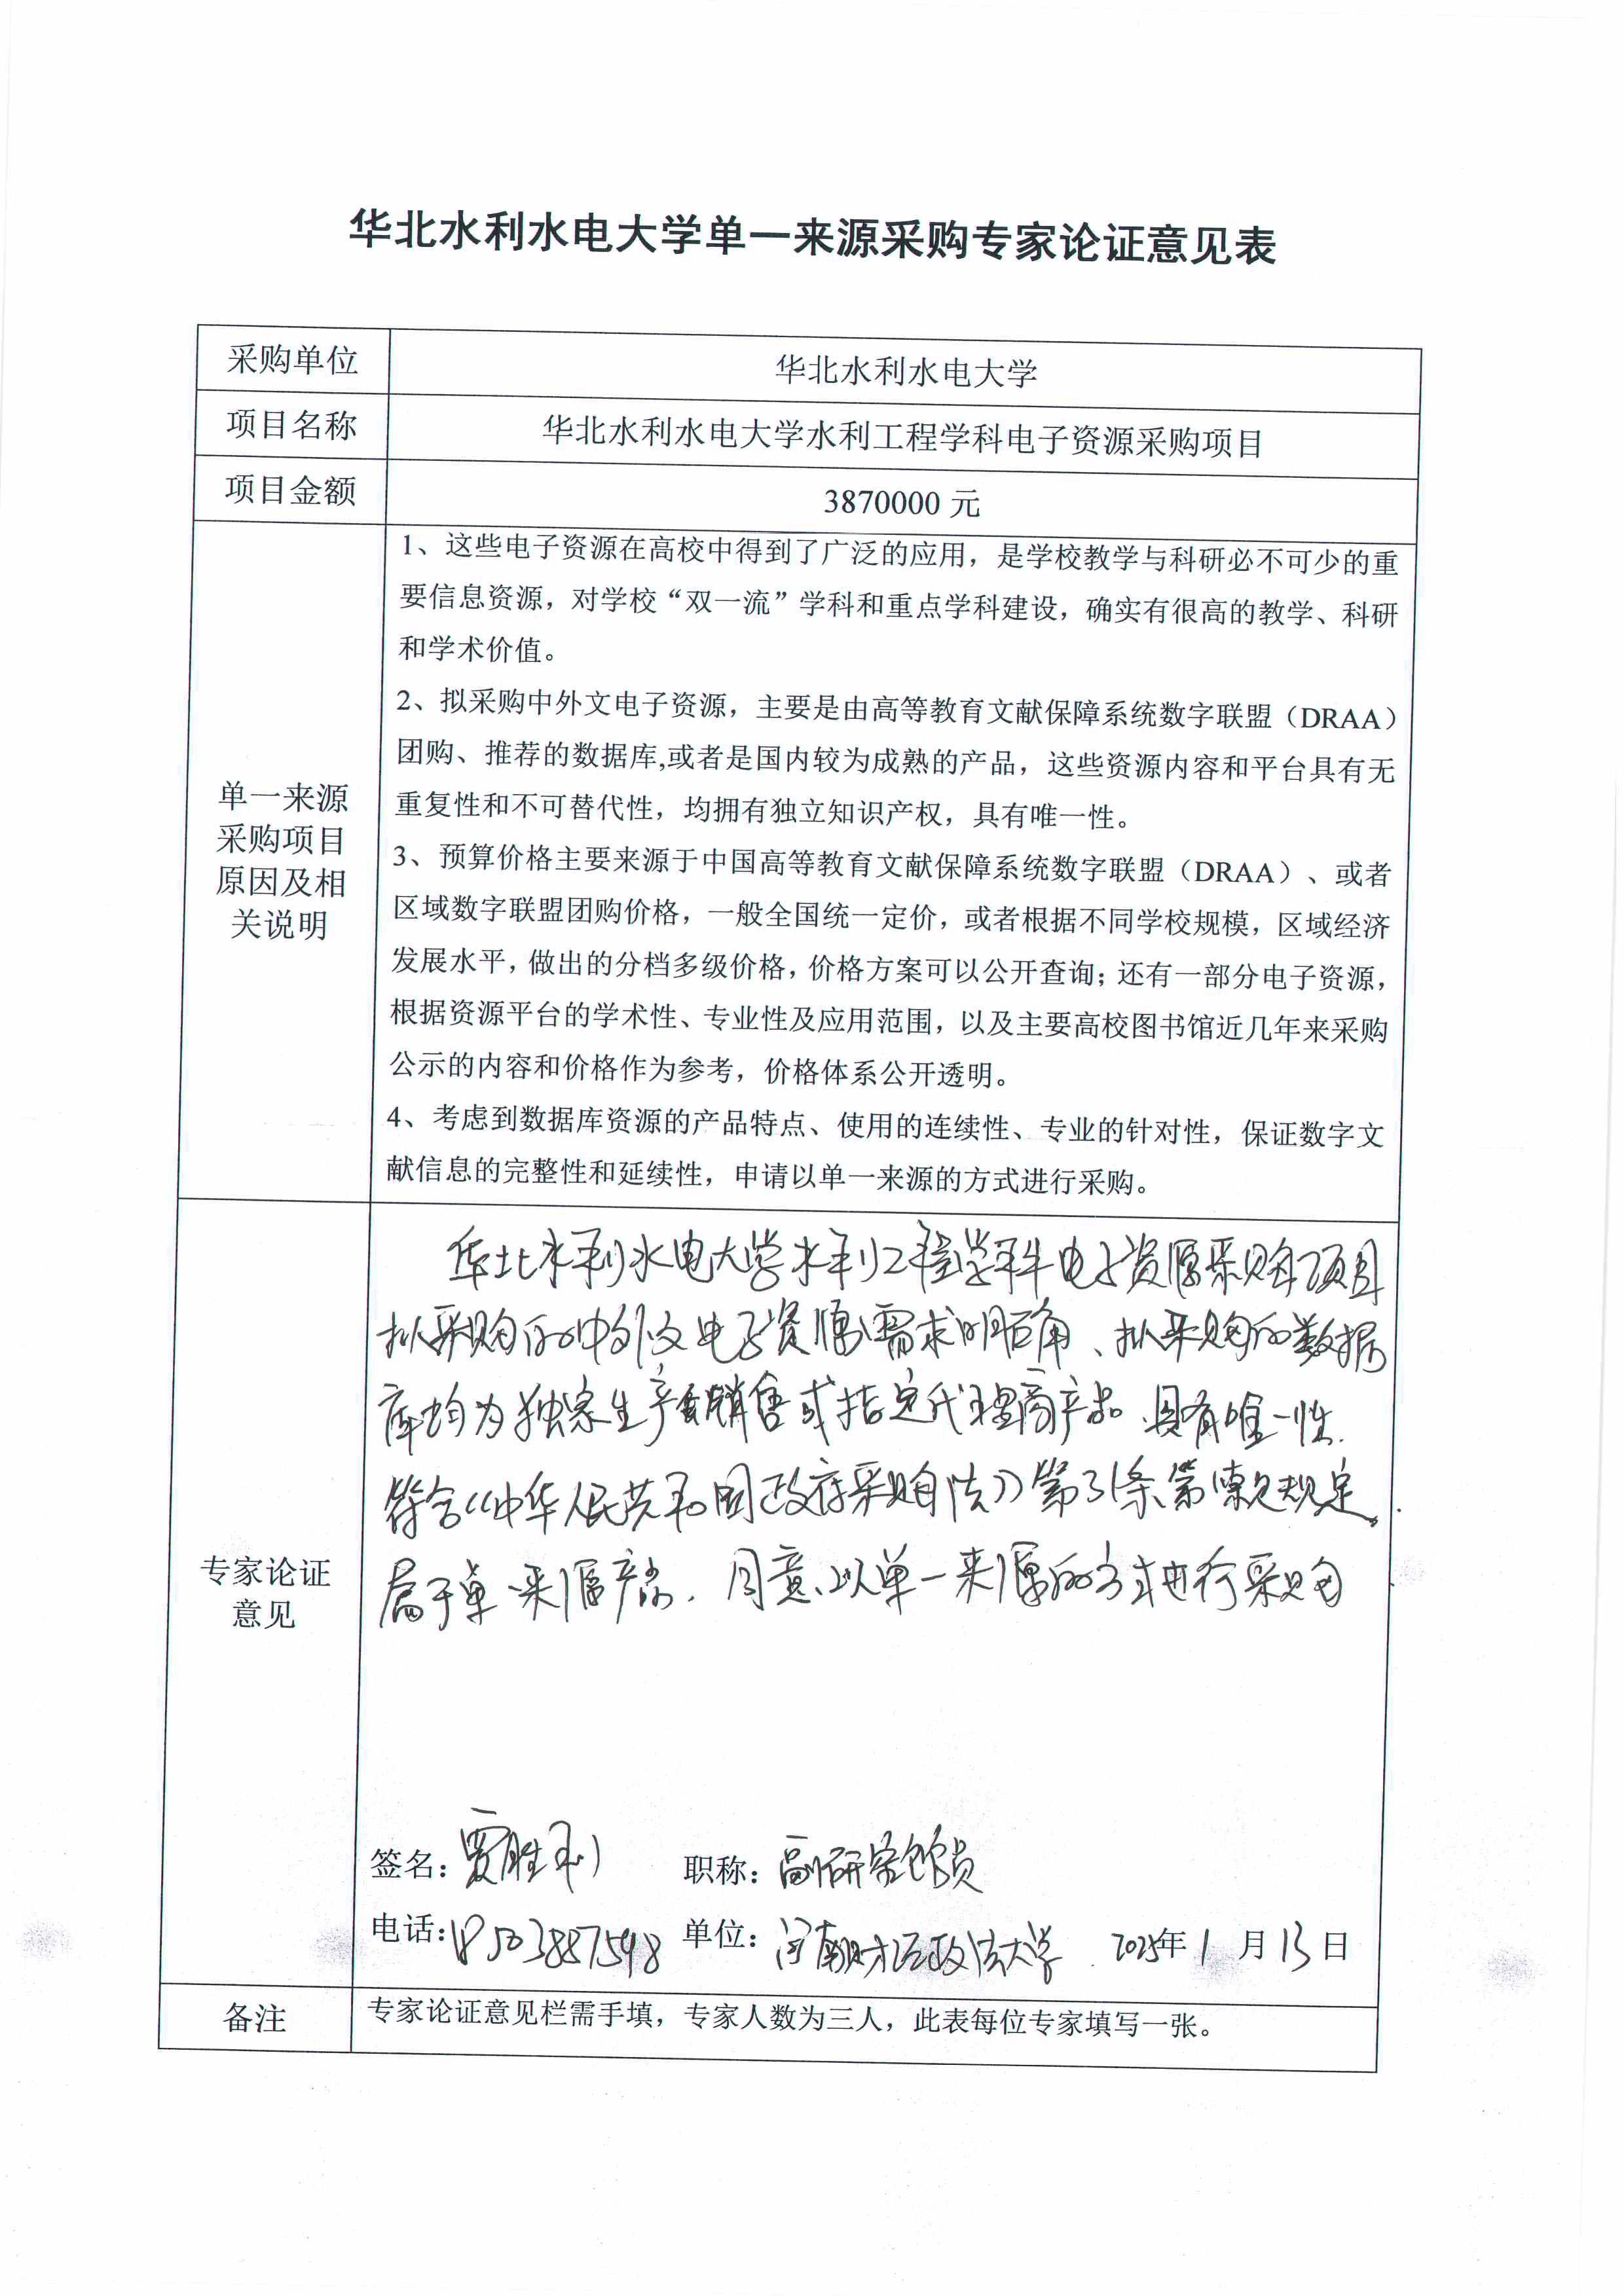 华北水利水电大学单一来源采购专家论证意见表
采购单位
华北水利水电大学
项目名称
华北水利水电大学水利工程学科电子资源采购项目
项目金额
3870000 元
单一来源
采购项目
原因及相
关说明
1、这些电子资源在高校中得到了广泛的应用，是学校教学与科研必不可少的重
要信息资源，对学校“双一流”学科和重点学科建设，确实有很高的教学、科研
和学术价值。
2、拟采购中外文电子资源，主要是由高等教育文献保障系统数字联盟（DRAA）
团购、推荐的数据库,或者是国内较为成熟的产品，这些资源内容和平台具有无
重复性和不可替代性，均拥有独立知识产权，具有唯一性。
3、预算价格主要来源于中国高等教育文献保障系统数字联盟（DRAA）、或者
区域数字联盟团购价格，一般全国统一定价，或者根据不同学校规模，区域经济
发展水平，做出的分档多级价格，价格方案可以公开查询；还有一部分电子资源，
根据资源平台的学术性、专业性及应用范围，以及主要高校图书馆近几年来采购
公示的内容和价格作为参考，价格体系公开透明。
4、考虑到数据库资源的产品特点、使用的连续性、专业的针对性，保证数字文
献信息的完整性和延续性，申请以单一来源的方式进行采购。
专家论证
意见
华北水利水电大学水利工程学科电子资源采购项目
拟采购的中外文电子资源需求明确、拟采购的数据
库均为独家生产销售或指定代理商产品，具有唯一性.
符合《中华人民共和国政府采购法》第31条第款规定。
属于单一来源产品. 同意以单一来源的方式进行采购
签名：贾胜利 职称：副研究馆员
电话: 单位：河南财经政法大学 2025年 1 月 13 日
备注
专家论证意见栏需手填，专家人数为三人，此表每位专家填写一张。